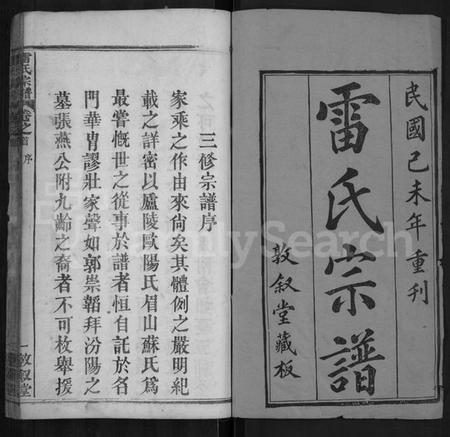 民國己未年重刊
雷氏宗譜
敦叙堂藏板
三修宗譜序
家乘之作由來尙矣其體例之嚴明紀
載之詳密以廬陵歐陽氏眉山蘇氏爲
最嘗慨世之從事於譜者恒自託於名
門華胄謬壯家聲如郭崇韜拜汾陽之
墓張燕公附九齡之裔者不可枚舉援
雷氏宗譜
卷之首 序
一 敦叙堂
FamilySearch